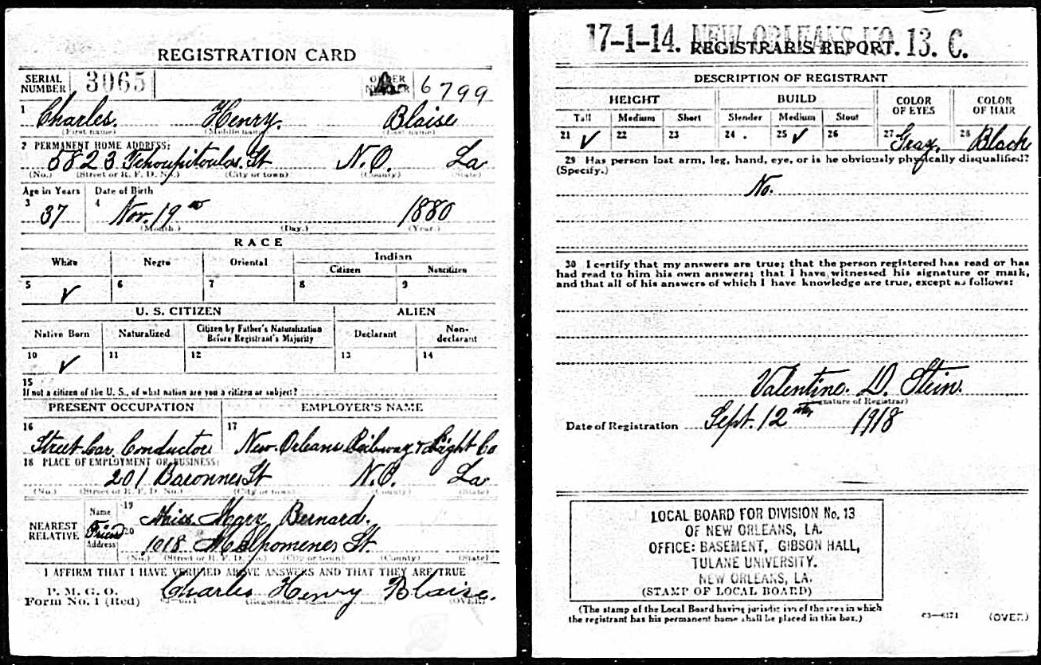 REGISTRATION CARD
SERIAL NUMBER 3065 ORDER NUMBER A 6799
1 Charles Henry Blaise
(First name) (Middle name) (Last name)
2 PERMANENT HOME ADDRESS:
5823 Tchoupitoulas St N.O. La
(No.) (Street or R. F. D. No.) (City or town) (County) (State)
Age in Years Date of Birth
3 37 4 Nov. 19th 1880
(Month.) (Day.) (Year.)
RACE
White Negro Oriental Indian
Citizen Noncitizen
5 ✓ 6 7 8 9
U. S. CITIZEN ALIEN
Native Born Naturalized Citizen by Father's Naturalization Before Registrant's Majority Declarant Non-declarant
10 ✓ 11 12 13 14
15
If not a citizen of the U. S., of what nation are you a citizen or subject?
PRESENT OCCUPATION EMPLOYER'S NAME
16 Street Car Conductor 17 New Orleans Railway & Light Co
18 PLACE OF EMPLOYMENT OR BUSINESS:
201 Baronne St N.O. La
(No.) (Street or R. F. D. No.) (City or town) (County) (State)
NEAREST RELATIVE Name 19 Miss Mary Bernard.
Friend Address 20 1018 Melpomenes St.
(No.) (Street or R. F. D. No.) (City or town) (County) (State)
I AFFIRM THAT I HAVE VERIFIED ABOVE ANSWERS AND THAT THEY ARE TRUE
P. M. G. O.
Form No. 1 (Red) Charles Henry Blaise.
(OVER)
17-1-14. NEW ORLEANS NO. 13. C.
REGISTRAR'S REPORT
DESCRIPTION OF REGISTRANT
HEIGHT BUILD COLOR OF EYES COLOR OF HAIR
Tall Medium Short Slender Medium Stout
21 ✓ 22 23 24 25 ✓ 26 27 Gray. 28 Black
29 Has person lost arm, leg, hand, eye, or is he obviously physically disqualified?
(Specify.)
No.
30 I certify that my answers are true; that the person registered has read or has
had read to him his own answers; that I have witnessed his signature or mark,
and that all of his answers of which I have knowledge are true, except as follows:
Valentine D. Stein.
(Signature of Registrar)
Date of Registration Sept. 12th, 1918
LOCAL BOARD FOR DIVISION No. 13
OF NEW ORLEANS, LA.
OFFICE: BASEMENT, GIBSON HALL,
TULANE UNIVERSITY.
NEW ORLEANS, LA.
(STAMP OF LOCAL BOARD)
(The stamp of the Local Board having jurisdiction of the area in which
the registrant has his permanent home shall be placed in this box.)
03—6171 (OVER)